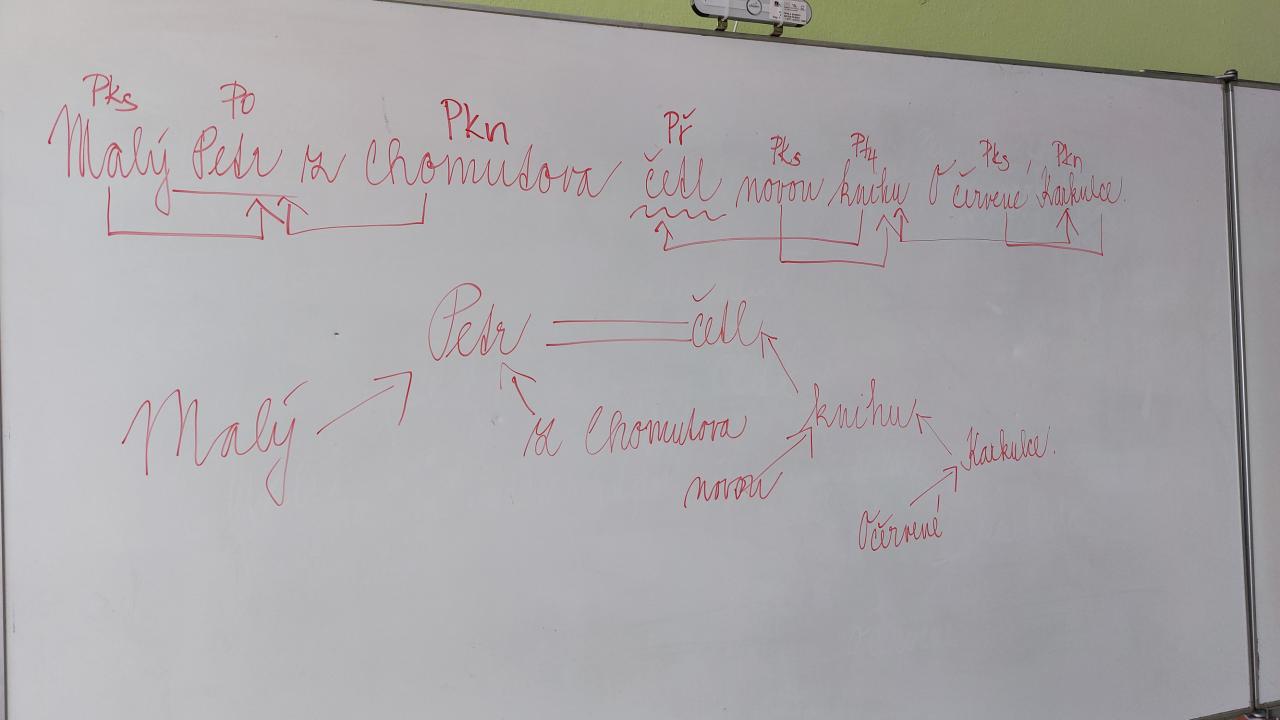 Pks Po Pkn Př Pks Pt4 Pks Pkn
Malý Petr z Chomutova četl novou knihu O červené Karkulce.
Petr četl
Malý z Chomutova knihu
novou Karkulce.
O červené